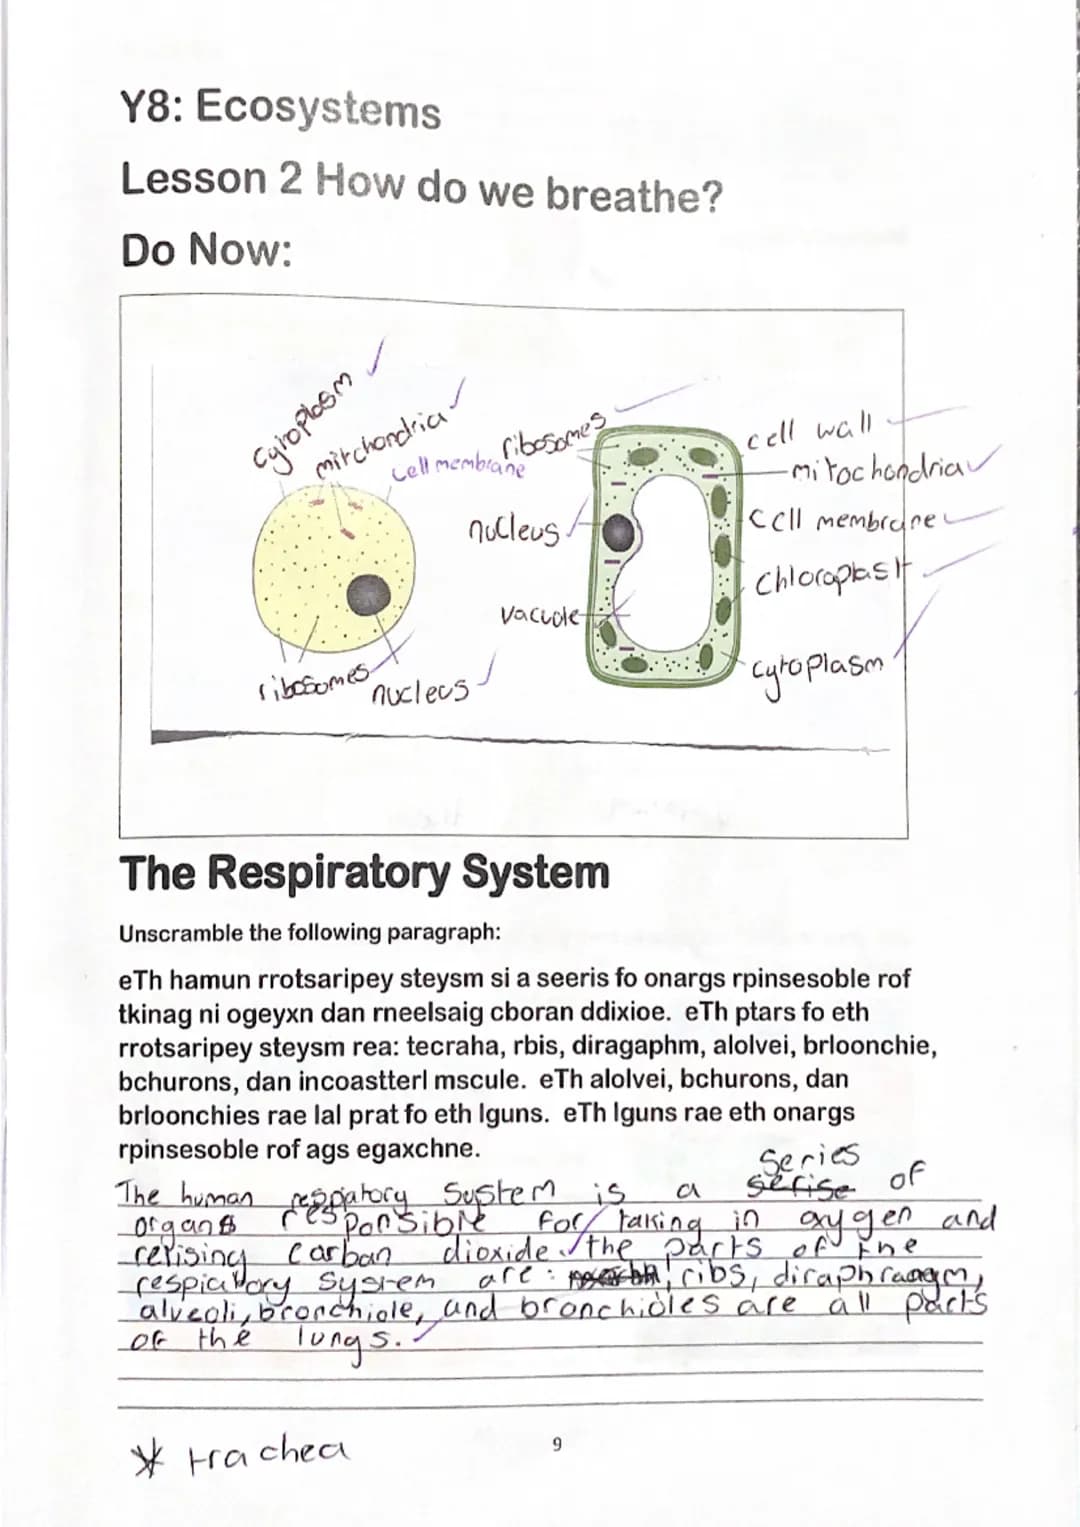 Y8: Ecosystems
Lesson 2 How do we breathe?
Do Now:
cytoplasm
mitchondria
cell membrane
ribosomes
nucleus
ribosomes
nucleus
vacuole
cell wall
mitochondria
cell membrane
chloroplast
cytoplasm
The Respiratory System
Unscramble the following paragraph:
eTh hamun rrotsaripey steysm si a seeris fo onargs rpinsesoble rof
tkinag ni ogeyxn dan rneelsaig cboran ddixioe. eTh ptars fo eth
rrotsaripey steysm rea: tecraha, rbis, diragaphm, alolvei, brloonchie,
bchurons, dan incoastterl mscule. eTh alolvei, bchurons, dan
brloonchies rae lal prat fo eth lguns. eTh lguns rae eth onargs
rpinsesoble rof ags egaxchne.
series
The human respiatory system is a serise of
organs responsible for taking in oxygen and
relising carban dioxide the parts of the
respiatory system are: ribs, diraphragm,
alveoli, bronchiole, and bronchioles are all parts
of the lungs.
* trachea
9